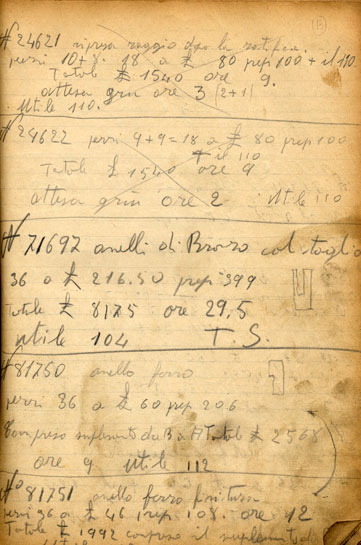 N° 24621 ripresa raggio dopo la rettifica
pezzi 10+8. 18 a £ 80 prep 100 + il 110
Totale £ 1540 ore 9.
attesa gru ore 3 (2+1)
Utile 110.
N° 24622 pezzi 9+9=18 a £ 80 prep 100
+ il 110
Totale £ 1540 ore 9
attesa gru ore 2 Utile 110
N° 71697 anelli di Bronzo col taglio
36 a £ 216.50 prep 399
Totale £ 8175 ore 29,5
utile 104 T. S.
N° 81750 anello ferro
pezzi 36 a £ 60 prep 206
Compreso suplemento da B a A Totale £ 2568
ore 9 utile 112
N° 81751 anello ferro finitura
pezzi 36 a £ 46 prep 108. ore 12
Totale £ 1992 compreso il suplemento di